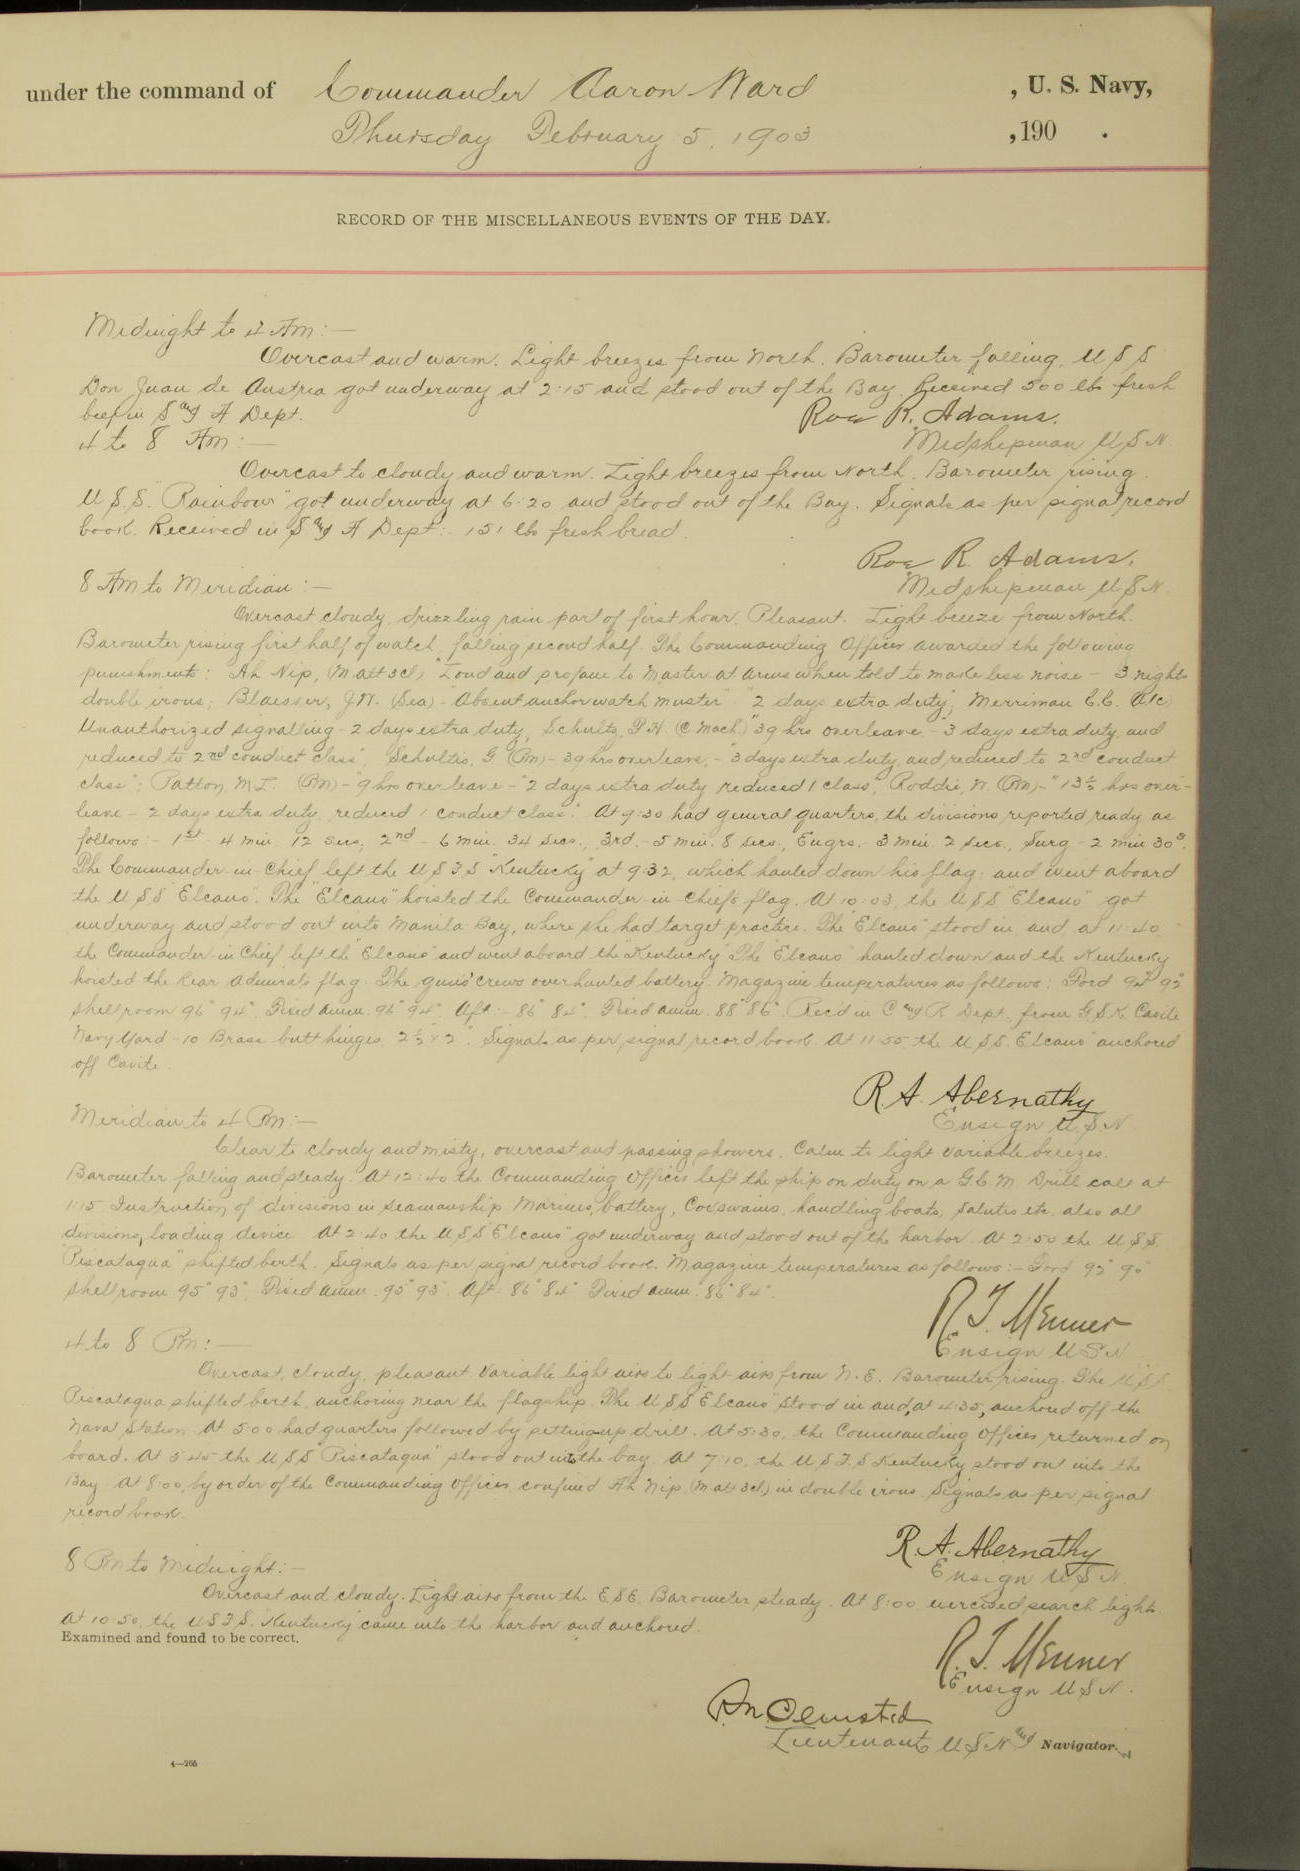 under the command of Commander Aaron Ward , U. S. Navy,
Thursday February 5, 1903 , 190 .
RECORD OF THE MISCELLANEOUS EVENTS OF THE DAY.
Midnight to 4 Am:—
Overcast and warm. Light breezes from North. Barometer falling. U S S
Don Juan de Austria got underway at 2:15 and stood out of the Bay. Received 500 lbs fresh
beef in S and A Dept.
Roe R. Adams.
4 to 8 Am:—
Midshipman U S N.
Overcast to cloudy and warm. Light breezes from North. Barometer rising.
U.S.S. "Rainbow" got underway at 6:20 and stood out of the Bay. Signals as per signal record
book. Received in S and A Dept:- 151 lbs fresh bread.
Roe R. Adams.
8 Am to Meridian:—
Midshipman U S N.
Overcast cloudy, drizzling rain part of first hour. Pleasant. Light breeze from North.
Barometer rising first half of watch, falling second half. The Commanding Officer awarded the following
punishments: Ah Nip, (M att 3cl) "Loud and profane to Master at Arms when told to make less noise - 3 nights
double irons; Blaesser, J.W. (Sea) - "Absent anchor watch muster" - "2 days extra duty"; Merriman C.C.
Unauthorized signalling - 2 days extra duty, Schultz, P.H. (C Mach) "39 hrs overleave - 3 days extra duty, and
reduced to 2nd conduct class", Schultis, G. (Pm) - 39 hrs overleave, - "3 days extra duty, and reduced to 2nd conduct
class"; Patton, M.I. (Pm) - "9 hrs overleave - "2 days extra duty reduced 1 class", Roddie, W. (Pm) - "13½ hrs over-
leave - 2 days extra duty, reduced 1 conduct class." At 9:30 had general quarters, the divisions reported ready as
follows:- 1st - 4 min. 12 secs, 2nd - 6 min. 34 secs., 3rd. - 5 min. 8 secs., Engrs. - 3 min. 2 secs., Surg - 2 min 30s.
The Commander-in-Chief left the U S F S "Kentucky" at 9:32, which hauled down his flag, and went aboard
the U S S "Elcano". The "Elcano" hoisted the Commander-in-Chief's flag. At 10:03, the U S S "Elcano" got
underway and stood out into Manila Bay, where she had target practice. The "Elcano" stood in and, at 11:40,
the Commander-in-Chief left the "Elcano" and went aboard the "Kentucky". The "Elcano" hauled down and the Kentucky
hoisted the Rear Admiral's flag. The guns' crews overhauled battery. Magazine temperatures as follows: Ford 92°
shell room 96° 94°. Fixed amm. 96° 94°. Aft:- 86° 84°. Fixed amm. 88° 86°. Rec'd in C and R Dept. from G S K Cavite
Navy Yard - 10 Brass butt hinges, 2½" x 2". Signals as per signal record book. At 11:55 the U S S. "Elcano" anchored
off Cavite.
R. A. Abernathy
Ensign U.S.N.
Meridian to 4 Pm:—
Clear to cloudy and misty, overcast and passing showers. Calm to light variable breezes.
Barometer falling and steady. At 12:40 the Commanding Officer left the ship on duty on a G C M. Drill call at
1:15 Instruction of divisions in seamanship. Marines, battery, Coxswains, handling boats, salutes etc. also all
divisions, loading device. At 2:40 the U S S "Elcano" got underway and stood out of the harbor. At 2:50 the U S S.
"Piscataqua" shifted berth. Signals as per signal record book. Magazine temperatures as follows:- Ford 92° 90°
shell room 95° 93°. Fixed amm. 95° 93°. Aft: 86° 84° Fixed amm. 86° 84°.
R. T. Menner
4 to 8 Pm:—
Ensign U S N
Overcast, cloudy, pleasant. Variable light airs to light airs from N.E. Barometer rising. The U S S.
Piscataqua shifted berth, anchoring near the flagship. The U S S "Elcano" stood in and, at 4:35, anchored off the
Naval Station. At 5:00 had quarters followed by setting-up drill. At 5:30, the Commanding Officer returned on
board. At 5:45 the U S S "Piscataqua" stood out into the bay. At 7:10, the U S F S Kentucky stood out into the
Bay. At 8:00, by order of the Commanding Officer confined Ah Nip (M att 3cl.) in double irons. Signals as per signal
record book.
R. A. Abernathy
8 Pm to Midnight:—
Ensign U S N.
Overcast and cloudy. Light airs from the E.S.E. Barometer steady. At 8:00 exercised search lights
At 10:50, the U S F S. "Kentucky" came into the harbor and anchored.
Examined and found to be correct.
R. T. Menner
Ensign U S N.
Olmsted
Lieutenant U S N and Navigator.
4—266